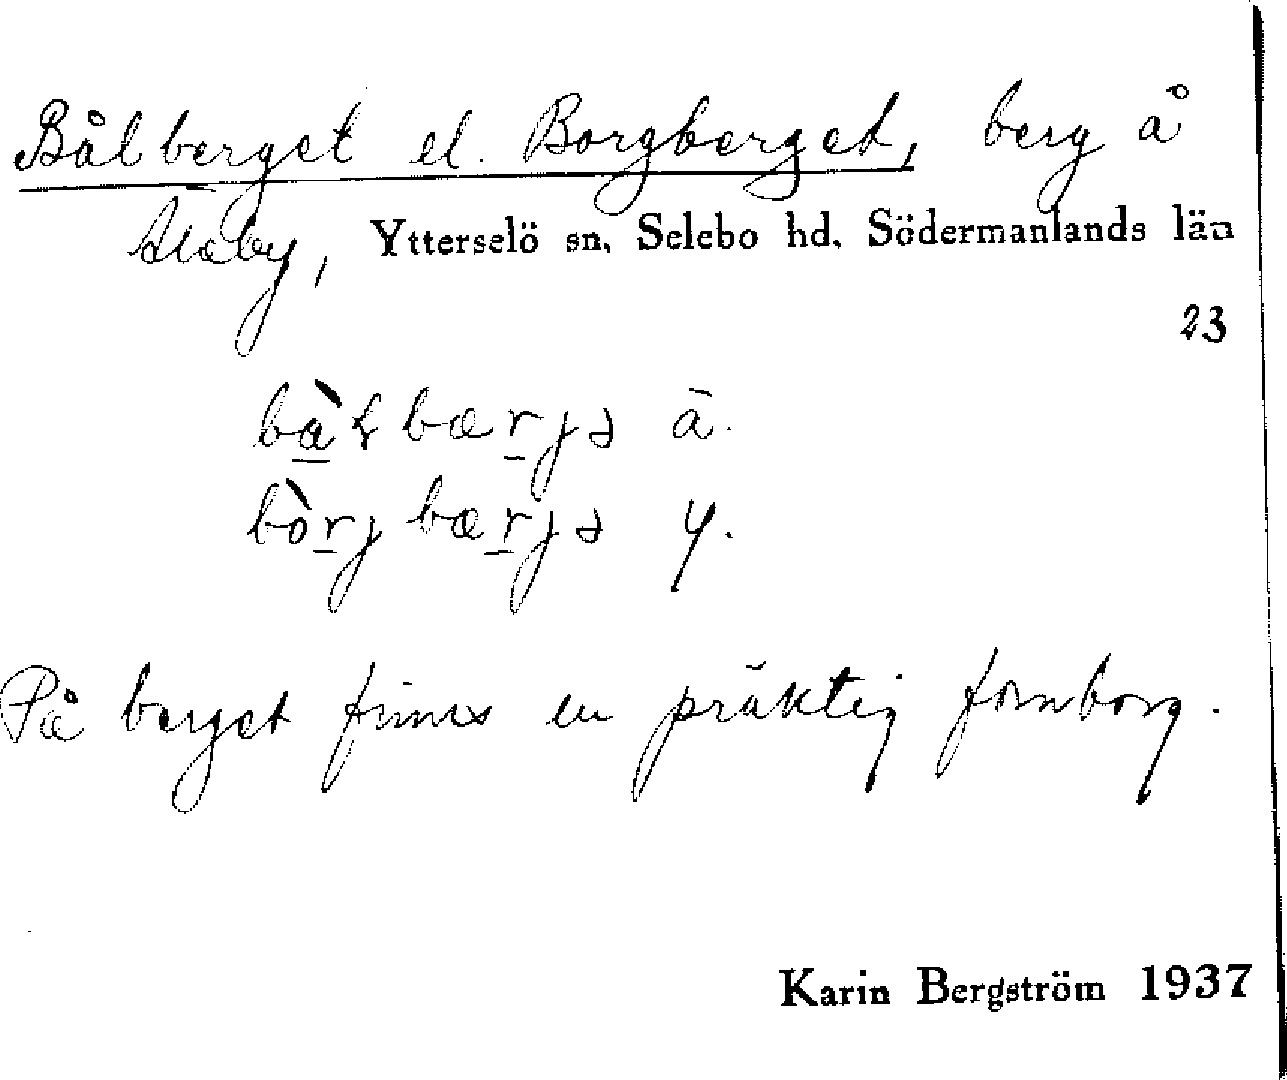 Bålberget el. Borgberget, berg å
Staby, Ytterselö sn. Selebo hd. Södermanlands län
23
bàlbærjə ä.
bòrjbærjə y.
På berget finnes en präktig fornborg.
Karin Bergström 1937